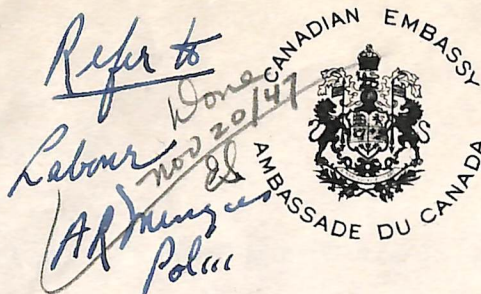 Refer to
Labour
Done
Nov 20/47
AR Menzies
CANADIAN EMBASSY
AMBASSADE DU CANADA